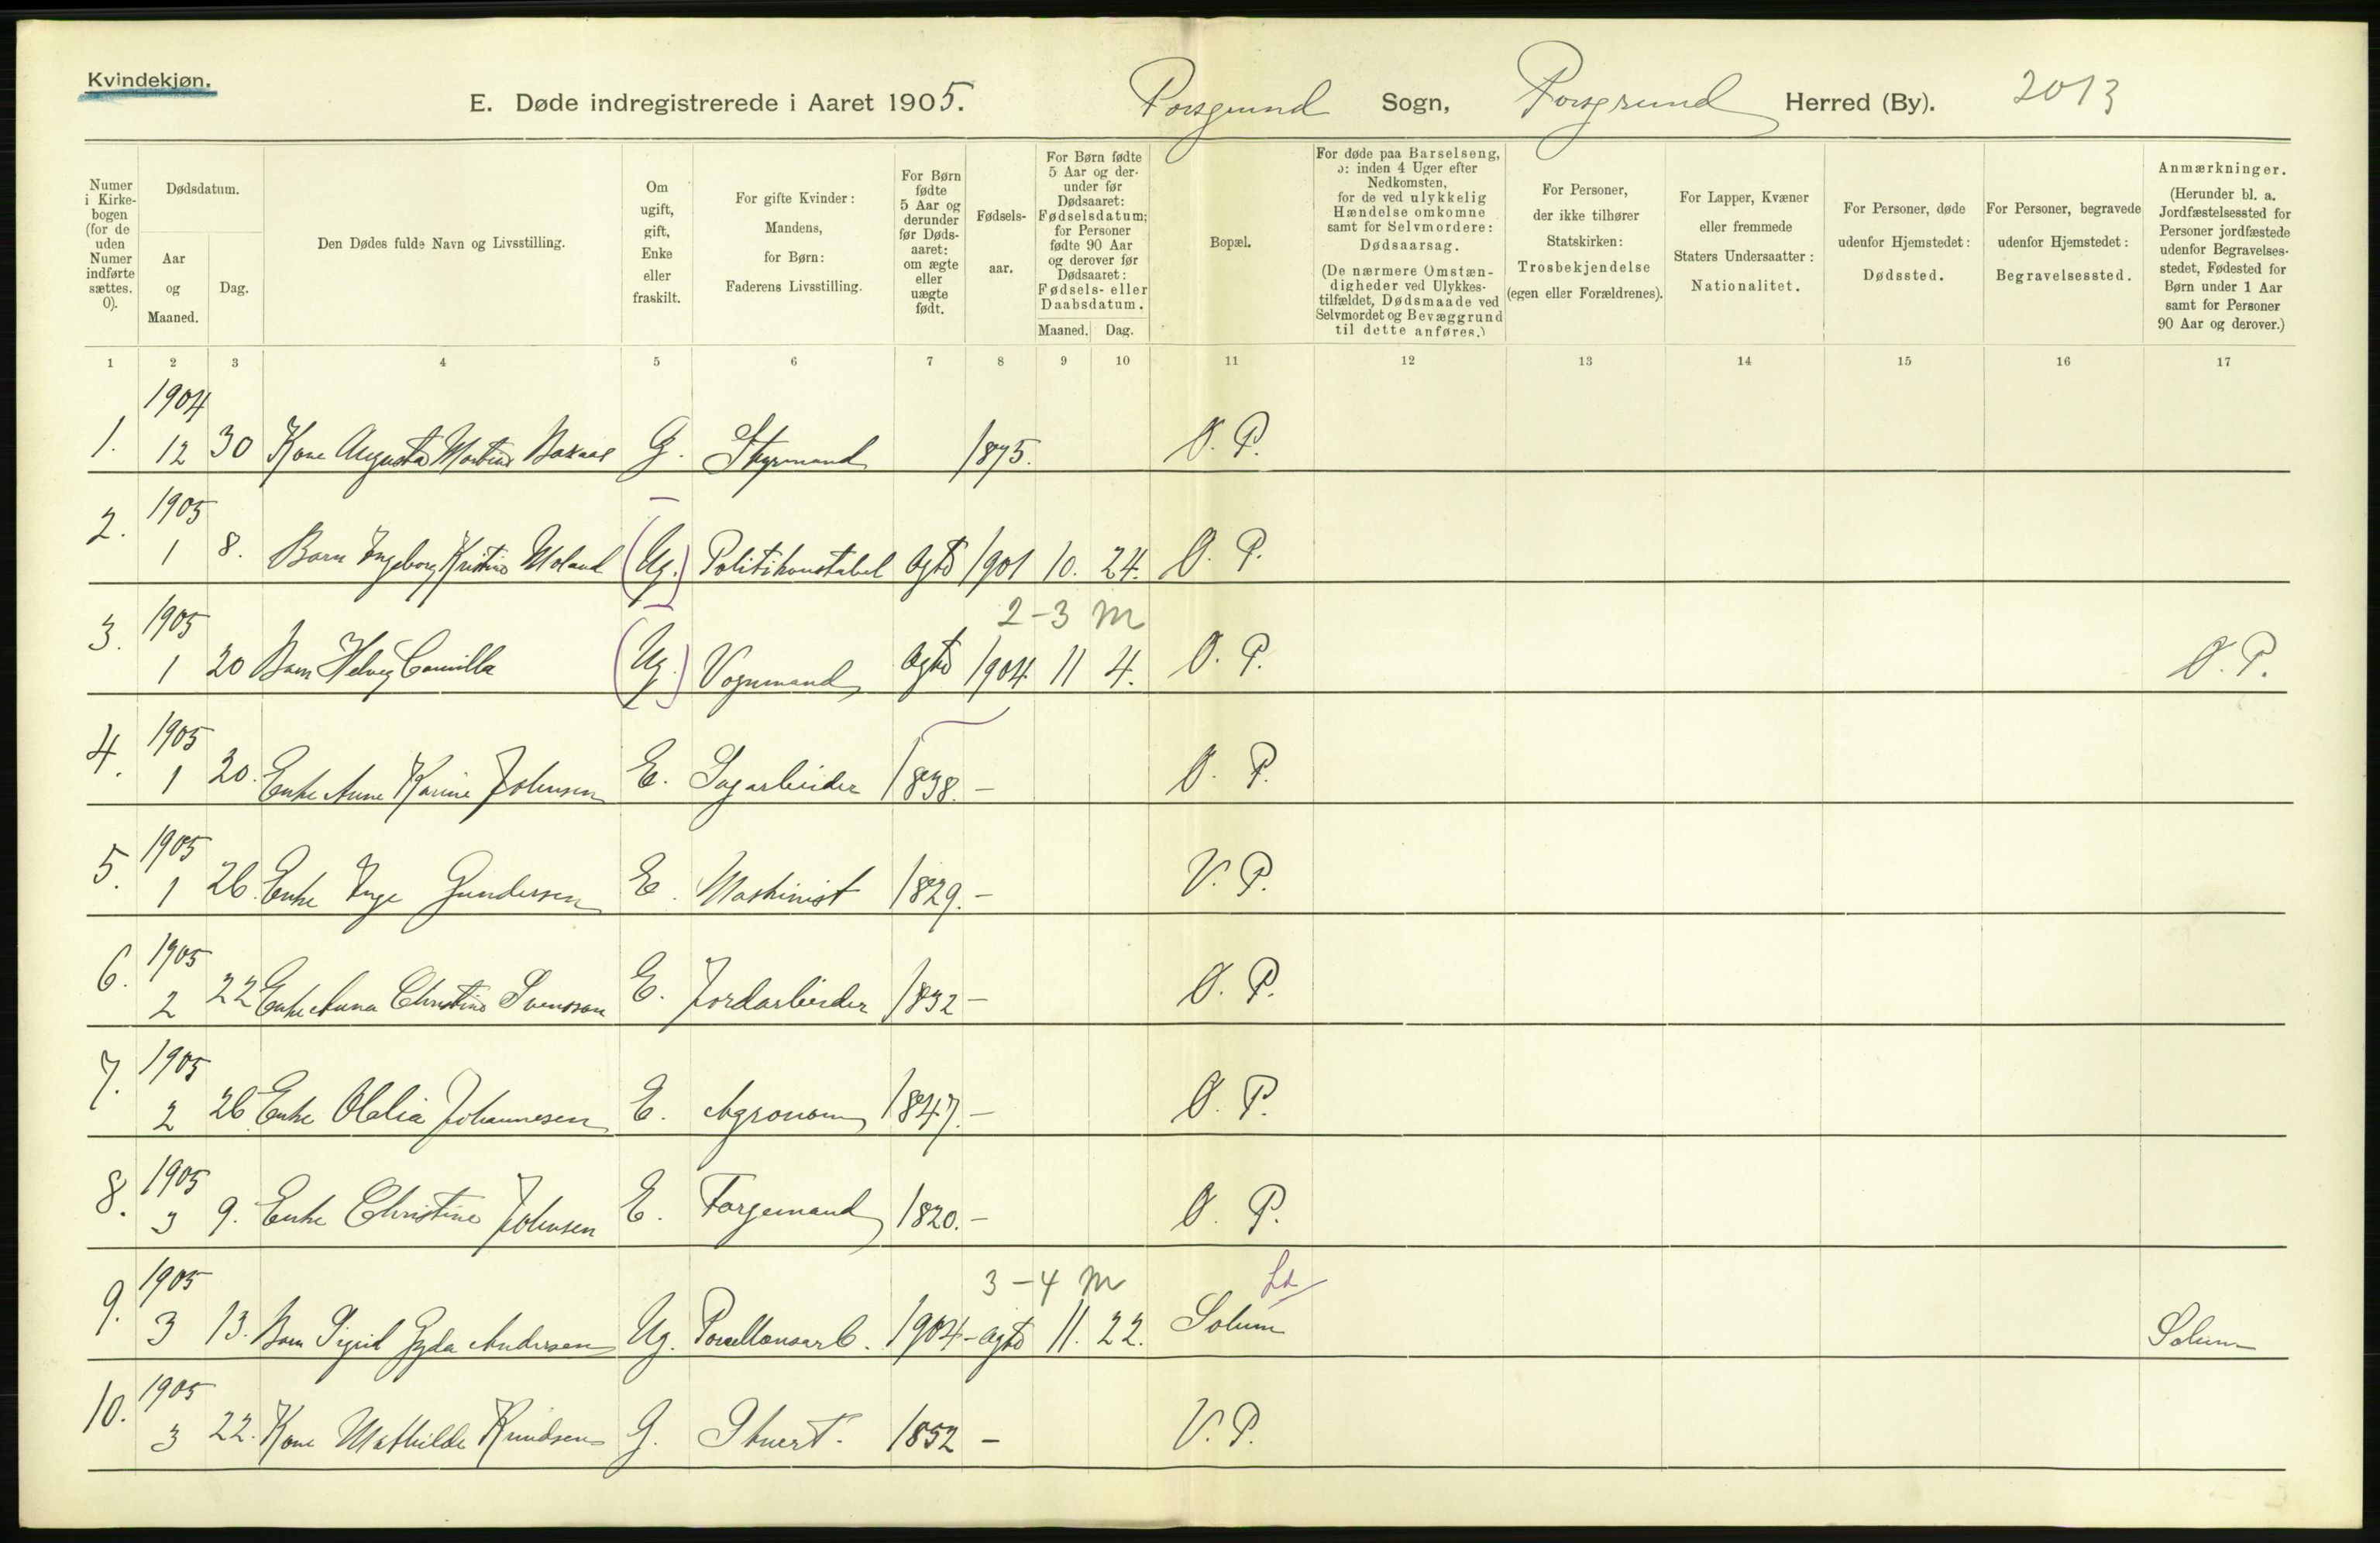 Kvindekjøn.
E. Døde indregistrerede i Aaret 1905. Porsgrund Sogn, Porsgrund Herred (By). 2013
Numer i Kirkebogen (for de uden Numer indførte sættes. 0).
Dødsdatum.
Aar og Maaned.
Dag.
Den Dødes fulde Navn og Livsstilling.
Om ugift, gift, Enke eller fraskilt.
For gifte Kvinder: Mandens, for Børn: Faderens Livsstilling.
For Børn fødte 5 Aar og derunder før Dødsaaret: om ægte eller uægte født.
Fødselsaar.
For Børn fødte 5 Aar og derunder før Dødsaaret: Fødselsdatum; for Personer fødte 90 Aar og derover før Dødsaaret: Fødsels- eller Daabsdatum.
Maaned. Dag.
Bopæl.
For døde paa Barselseng, ɔ: inden 4 Uger efter Nedkomsten, for de ved ulykkelig Hændelse omkomne samt for Selvmordere: Dødsaarsag. (De nærmere Omstændigheder ved Ulykkestilfældet, Dødsmaade ved Selvmordet og Bevæggrund til dette anføres.)
For Personer, der ikke tilhører Statskirken: Trosbekjendelse (egen eller Forældrenes).
For Lapper, Kvæner eller fremmede Staters Undersaatter: Nationalitet.
For Personer, døde udenfor Hjemstedet: Dødssted.
For Personer, begravede udenfor Hjemstedet: Begravelsessted.
Anmærkninger. (Herunder bl. a. Jordfæstelsessted for Personer jordfæstede udenfor Begravelsesstedet, Fødested for Børn under 1 Aar samt for Personer 90 Aar og derover.)
1 2 3 4 5 6 7 8 9 10 11 12 13 14 15 16 17
1904
1. 12 30 Kone Augusta G. Styrmand 1875. Ø. P.
1905
2. 1 8. Barn Ingeborg Kristine Moland (Ug.) Politikonstabel ægte 1901 10. 24. Ø. P.
1905 2-3 M
3. 1 20 Barn Helvig Camilla (Ug.) Vognmand ægte 1904 11 4. Ø. P. Ø. P.
1905
4. 1 20. Enke Anne Karine Johnsen E. Sagarbeider 1838. - Ø. P.
1905
5. 1 26. Enke Inge Gundersen E. Maskinist 1829. - V. P.
1905
6. 2 22 Enke Anna Christine Svensson E. Jordarbeider 1832 - Ø. P.
1905
7. 2 26 Enke Olelia Johannesen E. Agronom 1847. - Ø. P.
1905
8. 3 9. Enke Christine Johnsen E. Færgemand 1820. - Ø. P.
1905 3-4 M Ld
9. 3 13. Barn Sigrid Gyda Andersen Ug. Porcellænsarb. 1904 - ægte 11. 22. Solum Solum
1905
10. 3 22. Kone Mathilde Knudsen G. Stuert. 1852 - V. P.